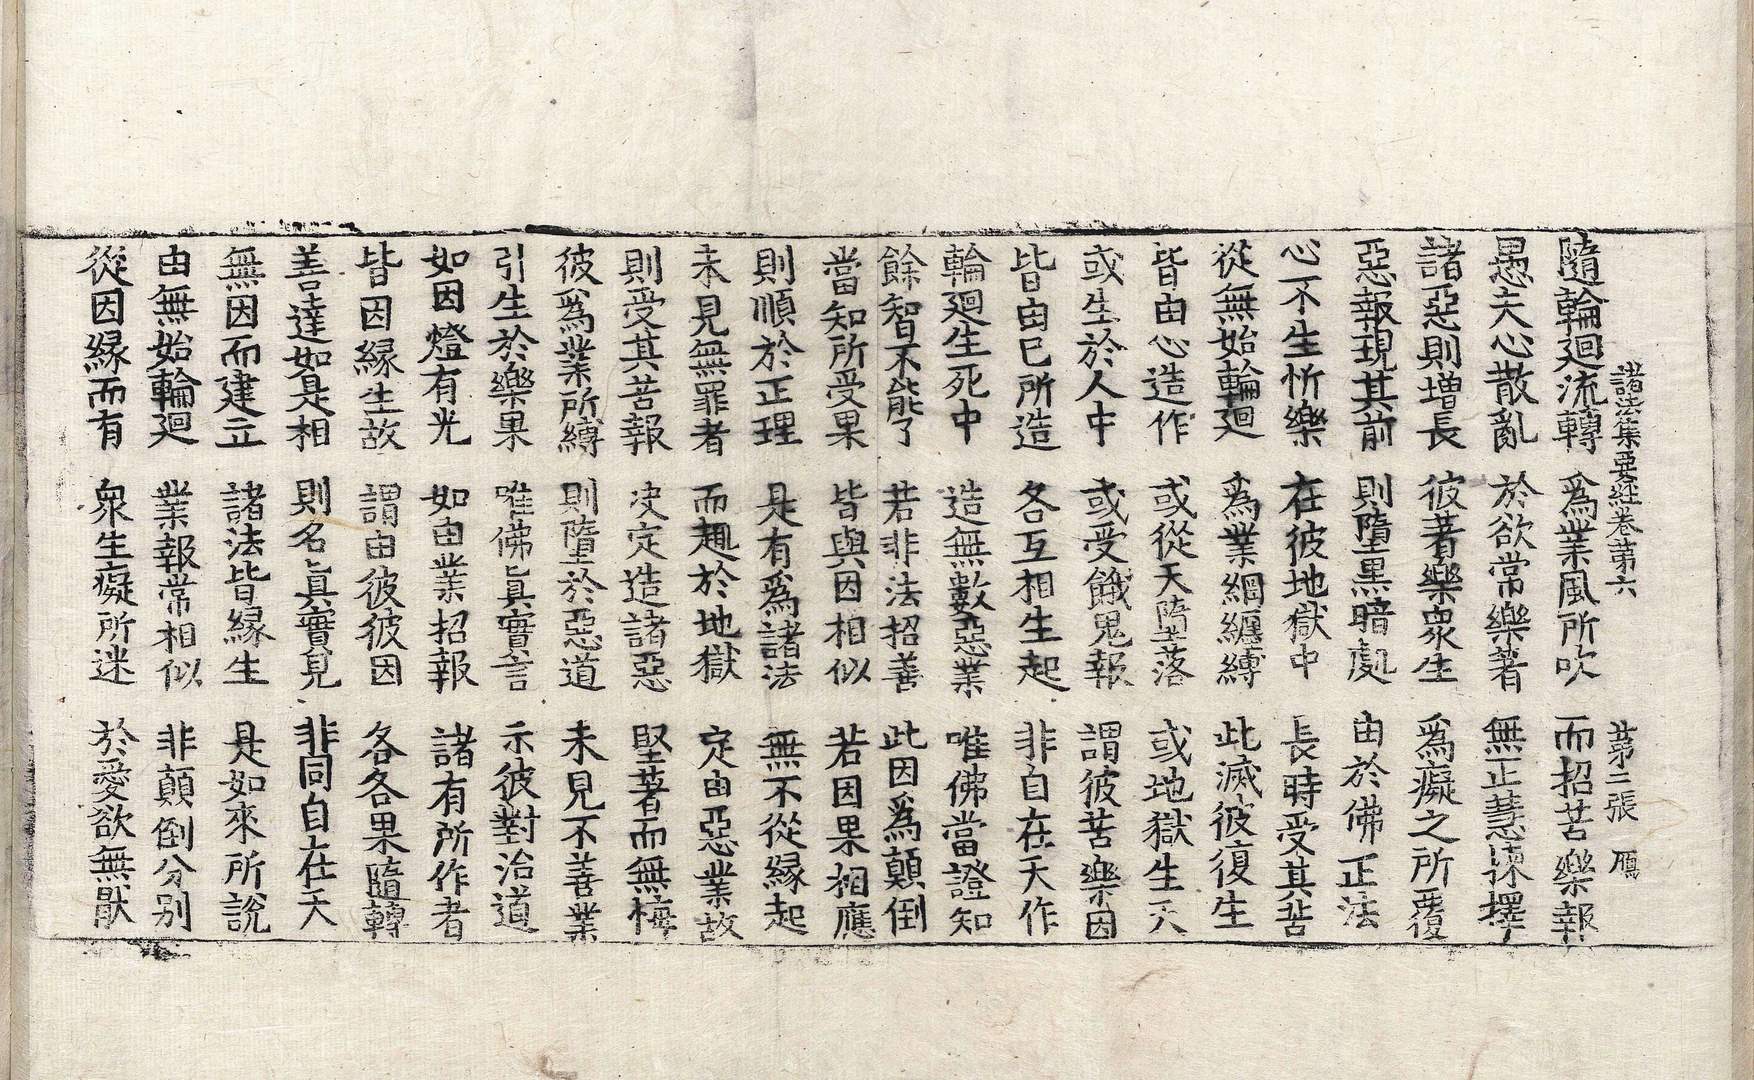 諸法集要經卷第六 第二張 鴈
隨輪廻流轉 爲業風所吹 而招苦樂報
愚夫心散亂 於欲常樂著 無正慧揀擇
諸惡則增長 彼著樂衆生 爲癡之所覆
惡報現其前 則墮黑暗處 由於佛正法
心不生忻樂 在彼地獄中 長時受其苦
從無始輪廻 爲業網纏縛 此滅彼復生
皆由心造作 或從天墮落 或地獄生天
或生於人中 或受餓鬼報 謂彼苦樂因
皆由已所造 各互相生起 非自在天作
輪廻生死中 造無數惡業 唯佛當證知
餘智不能了 若非法招善 此因爲顛倒
當知所受果 皆與因相似 若因果相應
則順於正理 是有爲諸法 無不從緣起
未見無罪者 而趣於地獄 定由惡業故
則受其苦報 决定造諸惡 堅著而無悔
彼爲業所縛 則墮於惡道 未見不善業
引生於樂果 唯佛眞實言 示彼對治道
如因燈有光 如由業招報 諸有所作者
皆因緣生故 謂由彼彼因 各各果隨轉
善達如是相 則名眞實見 非同自在天
無因而建立 諸法皆緣生 是如來所說
由無始輪廻 業報常相似 非顛倒分別
從因緣而有 衆生癡所迷 於愛欲無猒